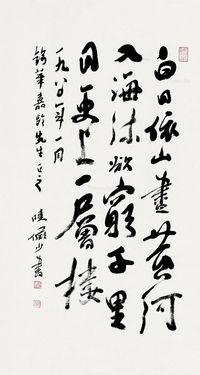 白日依山盡黃河
入海流欲窮千里
目更上一層樓
一九八年月
華嘉先生正之
陸儼少書